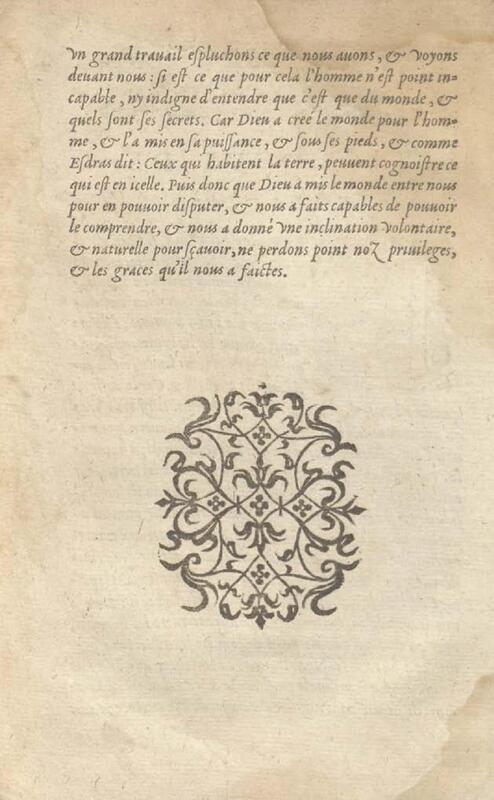 vn grand trauail eſpluchons ce que nous auons, & voyons
deuant nous : ſi eſt ce que pour cela l'homme n'eſt point in-
capable, ny indigne d'entendre que c'eſt que du monde, &
quels ſont ſes ſecrets. Car Dieu a creé le monde pour l'hom-
me, & l'a mis en ſa puiſſance, & ſous ſes pieds, & comme
Eſdras dit : Ceux qui habitent la terre, peuuent cognoiſtre ce
qui eſt en icelle. Puis donc que Dieu a mis le monde entre nous
pour en pouuoir diſputer, & nous a faits capables de pouuoir
le comprendre, & nous a donné vne inclination volontaire,
& naturelle pour ſçauoir, ne perdons point noz priuileges,
& les graces qu'il nous a faictes.